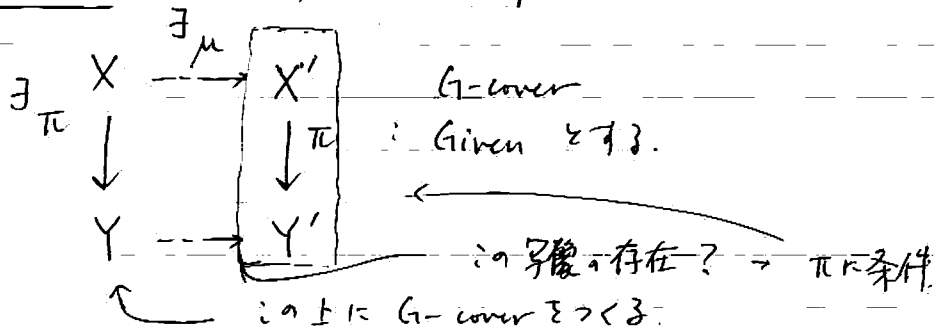 ∃μ
X ⇢ X' G-cover
∃π ↓ ↓ π : Given とする.
Y ⇢ Y'
この写像の存在? → πに条件
この上に G-cover をつくる.